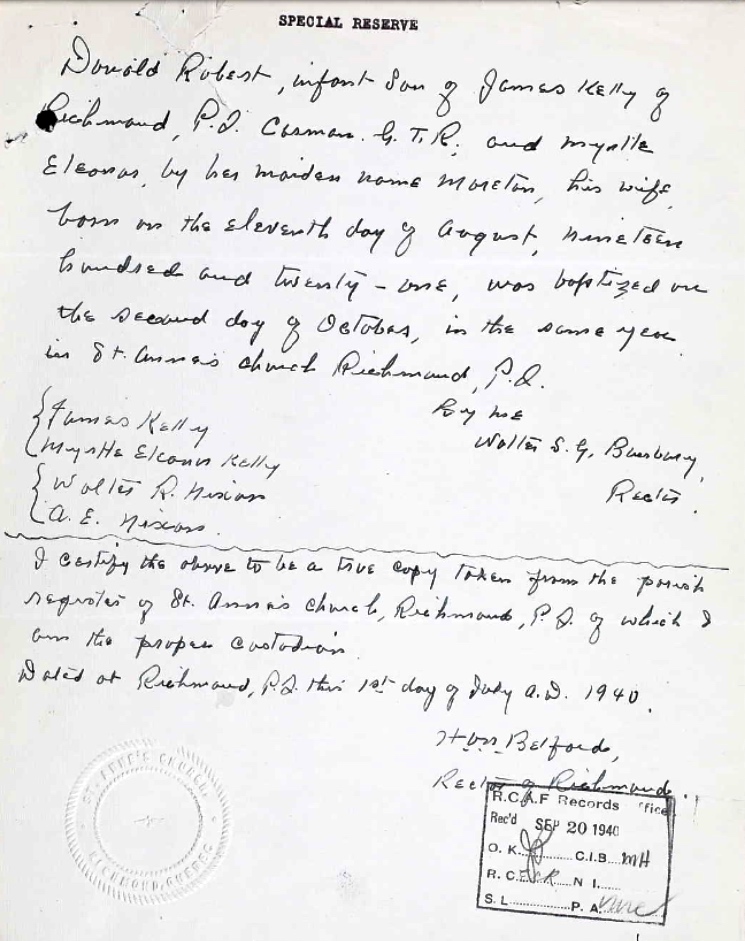 SPECIAL RESERVE
Donald Robert, infant son of James Kelly of
Richmond, P.Q. Carman G.T.R. and Myrtle
Eleanor, by her maiden name Moreton, his wife,
born on the eleventh day of August, nineteen
hundred and twenty-one, was baptized on
the second day of October, in the same year
in St. Anne's church Richmond, P.Q.
by me
Walter S. G.
Rector.
James Kelly
Myrtle Eleanor Kelly
Walter R. Nixon
A. E. Nixon
I certify the above to be a true copy taken from the parish
register of St. Anne's church, Richmond, P.Q. of which I
am the proper custodian.
Dated at Richmond, P.Q. this 1st day of July A.D. 1940.
Belford,
Rector of Richmond.
ST. ANNE'S CHURCH
RICHMOND, QUEBEC
R.C.A.F Records Office
Rec'd SEP 20 1940
O. K. C.I.B. MH
R. C. N I.
S. L. P. A.